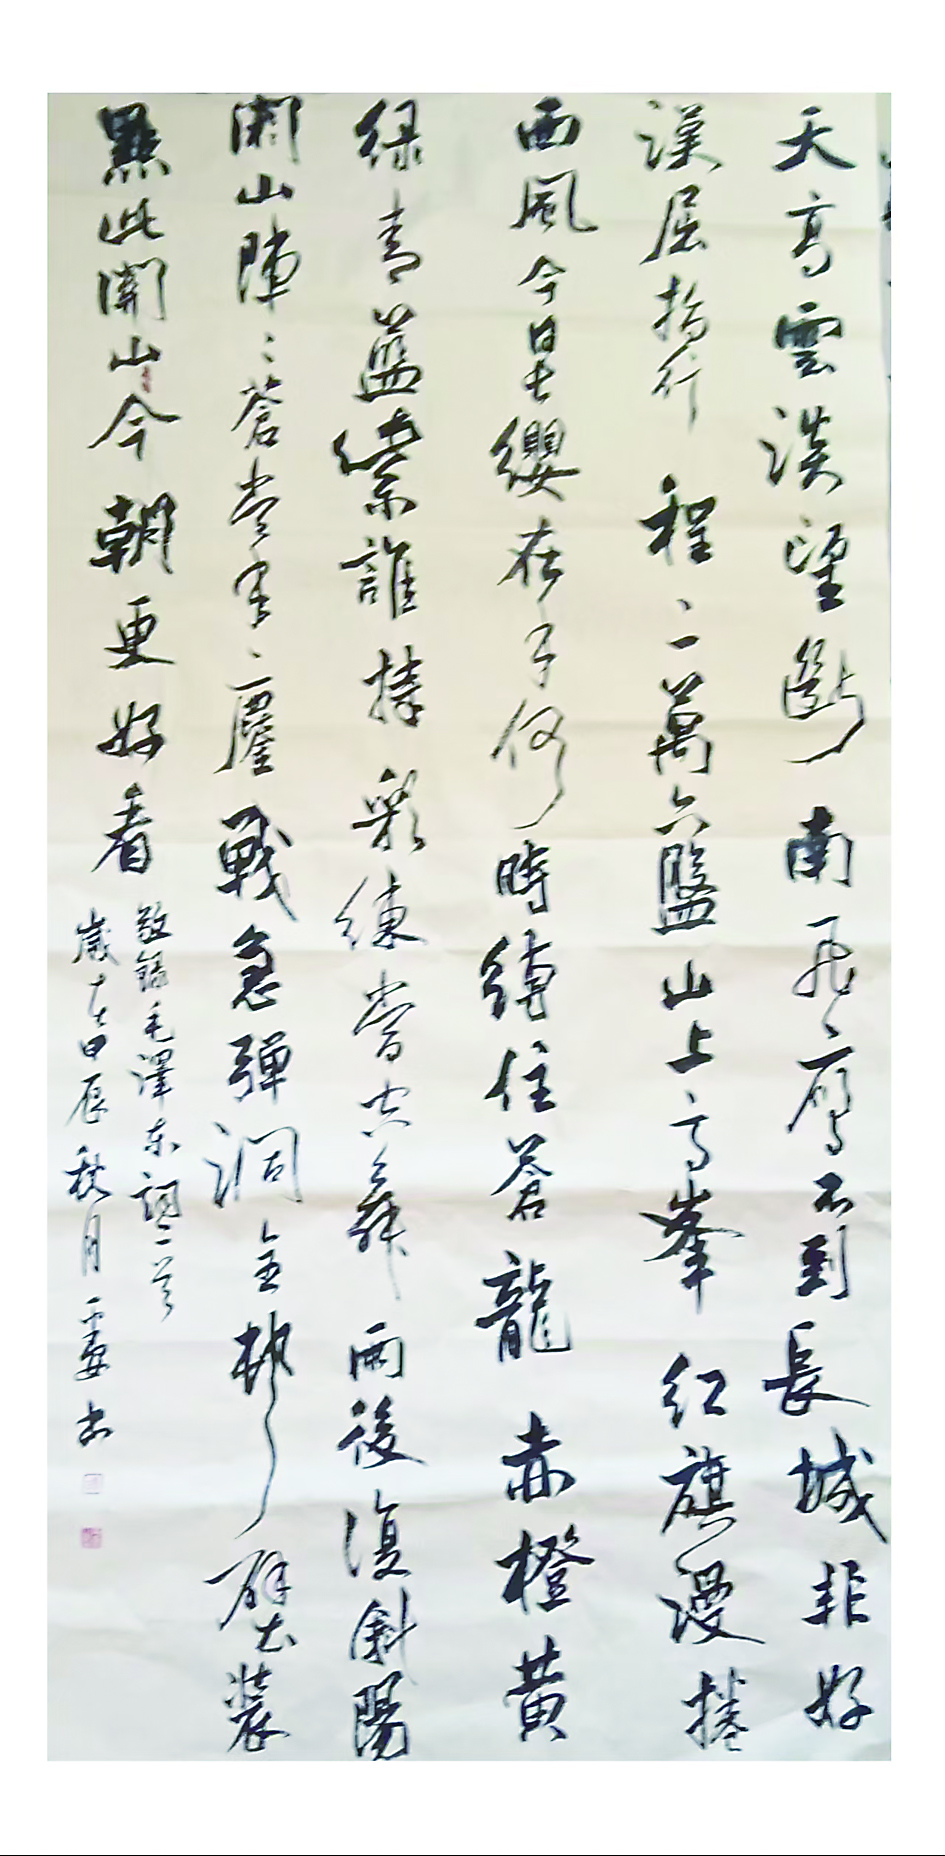 天高雲淡望斷南飛雁不到長城非好
漢屈指行程二萬六盤山上高峯紅旗漫捲
西風今日長纓在手何時縛住蒼龍赤橙黄
緑青藍紫誰持彩練當空舞雨後復斜陽
關山陣々蒼當年々鏖戰急彈洞前村壁裝
點此關山今朝更好看
敬録毛澤东詞二首
歲在甲辰秋月
書